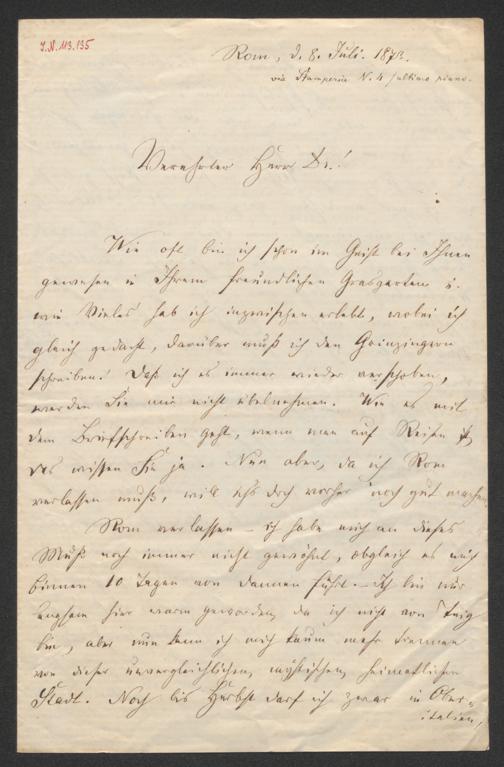 J.N. 113.135
Rom, d. 8. Juli. 1873.
via Stamperia N. 4 ultimo piano.
Verehrter Herr Dr.!
Wie oft bin ich schon im Geist bei Ihnen
gewesen in Ihrem freundlichen Grasgarten u.
wie Vieles hab ich inzwischen erlebt, wobei ich
gleich gedacht, darüber muß ich den Grinzingern
schreiben! Daß ich es immer wieder verschoben,
werden Sie mir nicht übelnehmen. Wie es mit
dem Briefschreiben geht, wenn man auf Reisen ist,
das wissen Sie ja. Nun aber, da ich Rom
verlassen muß, will ichs doch vorher noch gut machen
Rom verlassen – ich habe mich an dieses
Muß noch immer nicht gewöhnt, obgleich es mich
binnen 10 Tagen von dannen führt. – Ich bin nur
langsam hier warm geworden, da ich nicht von
bin, aber nun kann ich mich kaum mehr trennen
von dieser unvergleichlichen, mystischen, heimatlichen
Stadt. Noch bis Herbst darf ich zwar in Ober-
italien,